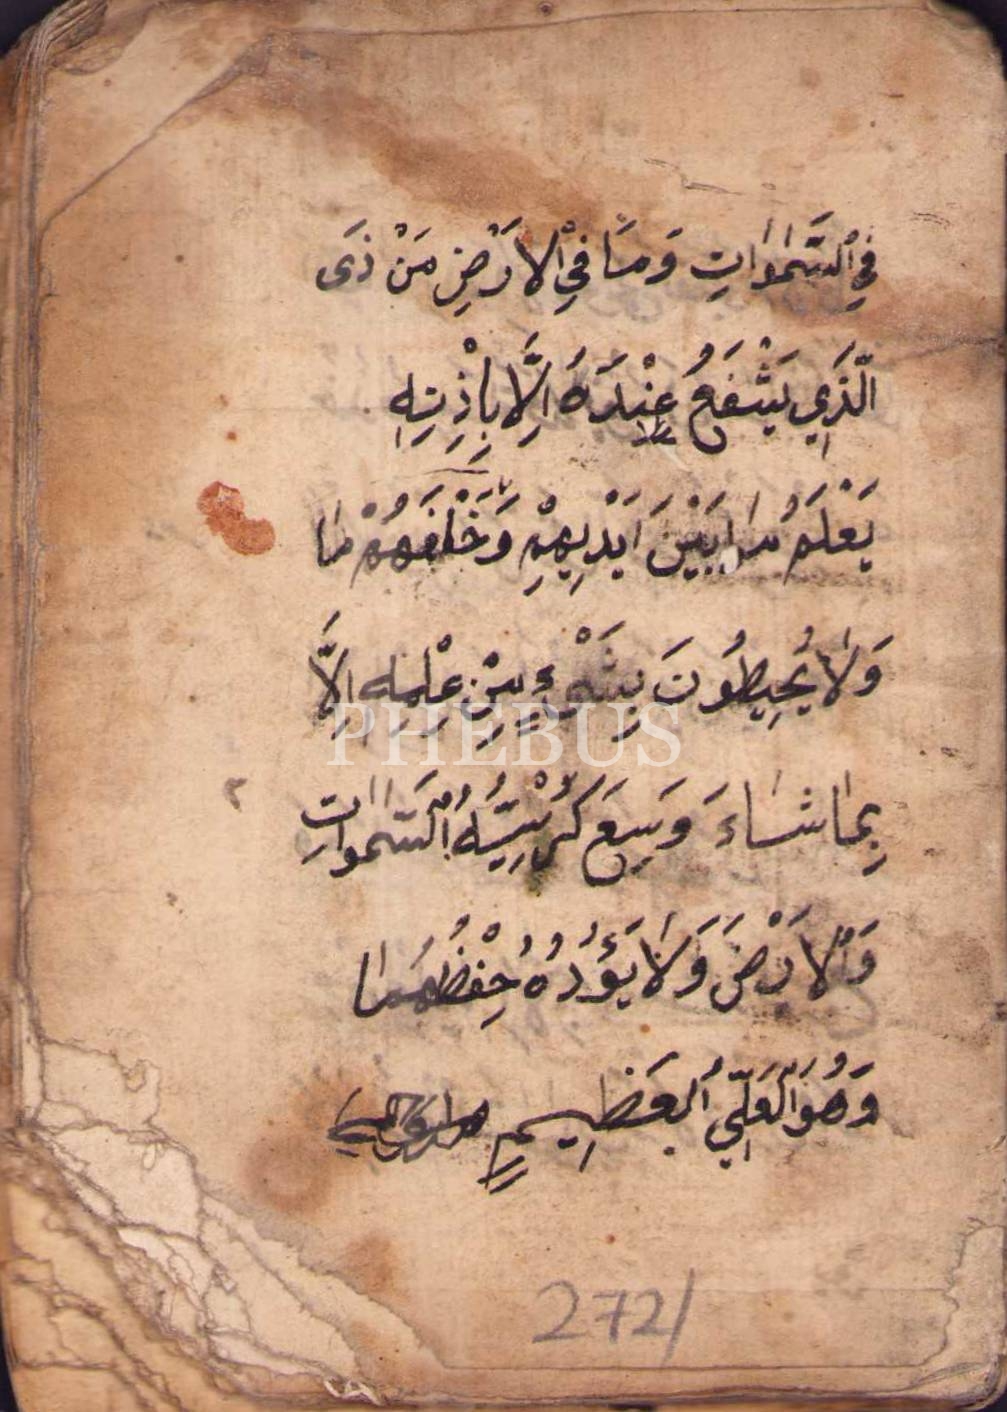 فِي ٱلسَّمٰوَاتِ وَمَا فِي ٱلْاَرْضِ مَنْ ذَى
الَّذِي يَشْفَعُ عِنْدَهُ اِلَّا بِاِذْنِهِ
يَعْلَمُ مَا بَيْنَ اَيْدِيهِمْ وَخَلْفَهُمْ مَا
وَلَا يُحِيطُونَ بِشَيْءٍ مِنْ عِلْمِهِ اِلَّا
PHEBUS
بِمَا شَاءَ وَسِعَ كُرْسِيُّهُ ٱلسَّمٰوَاتِ
٢
وَٱلْاَرْضَ وَلَا يَؤُدُهُ حِفْظُهُمَا
وَهُوَ ٱلْعَلِيُّ ٱلْعَظِيمِ
272/